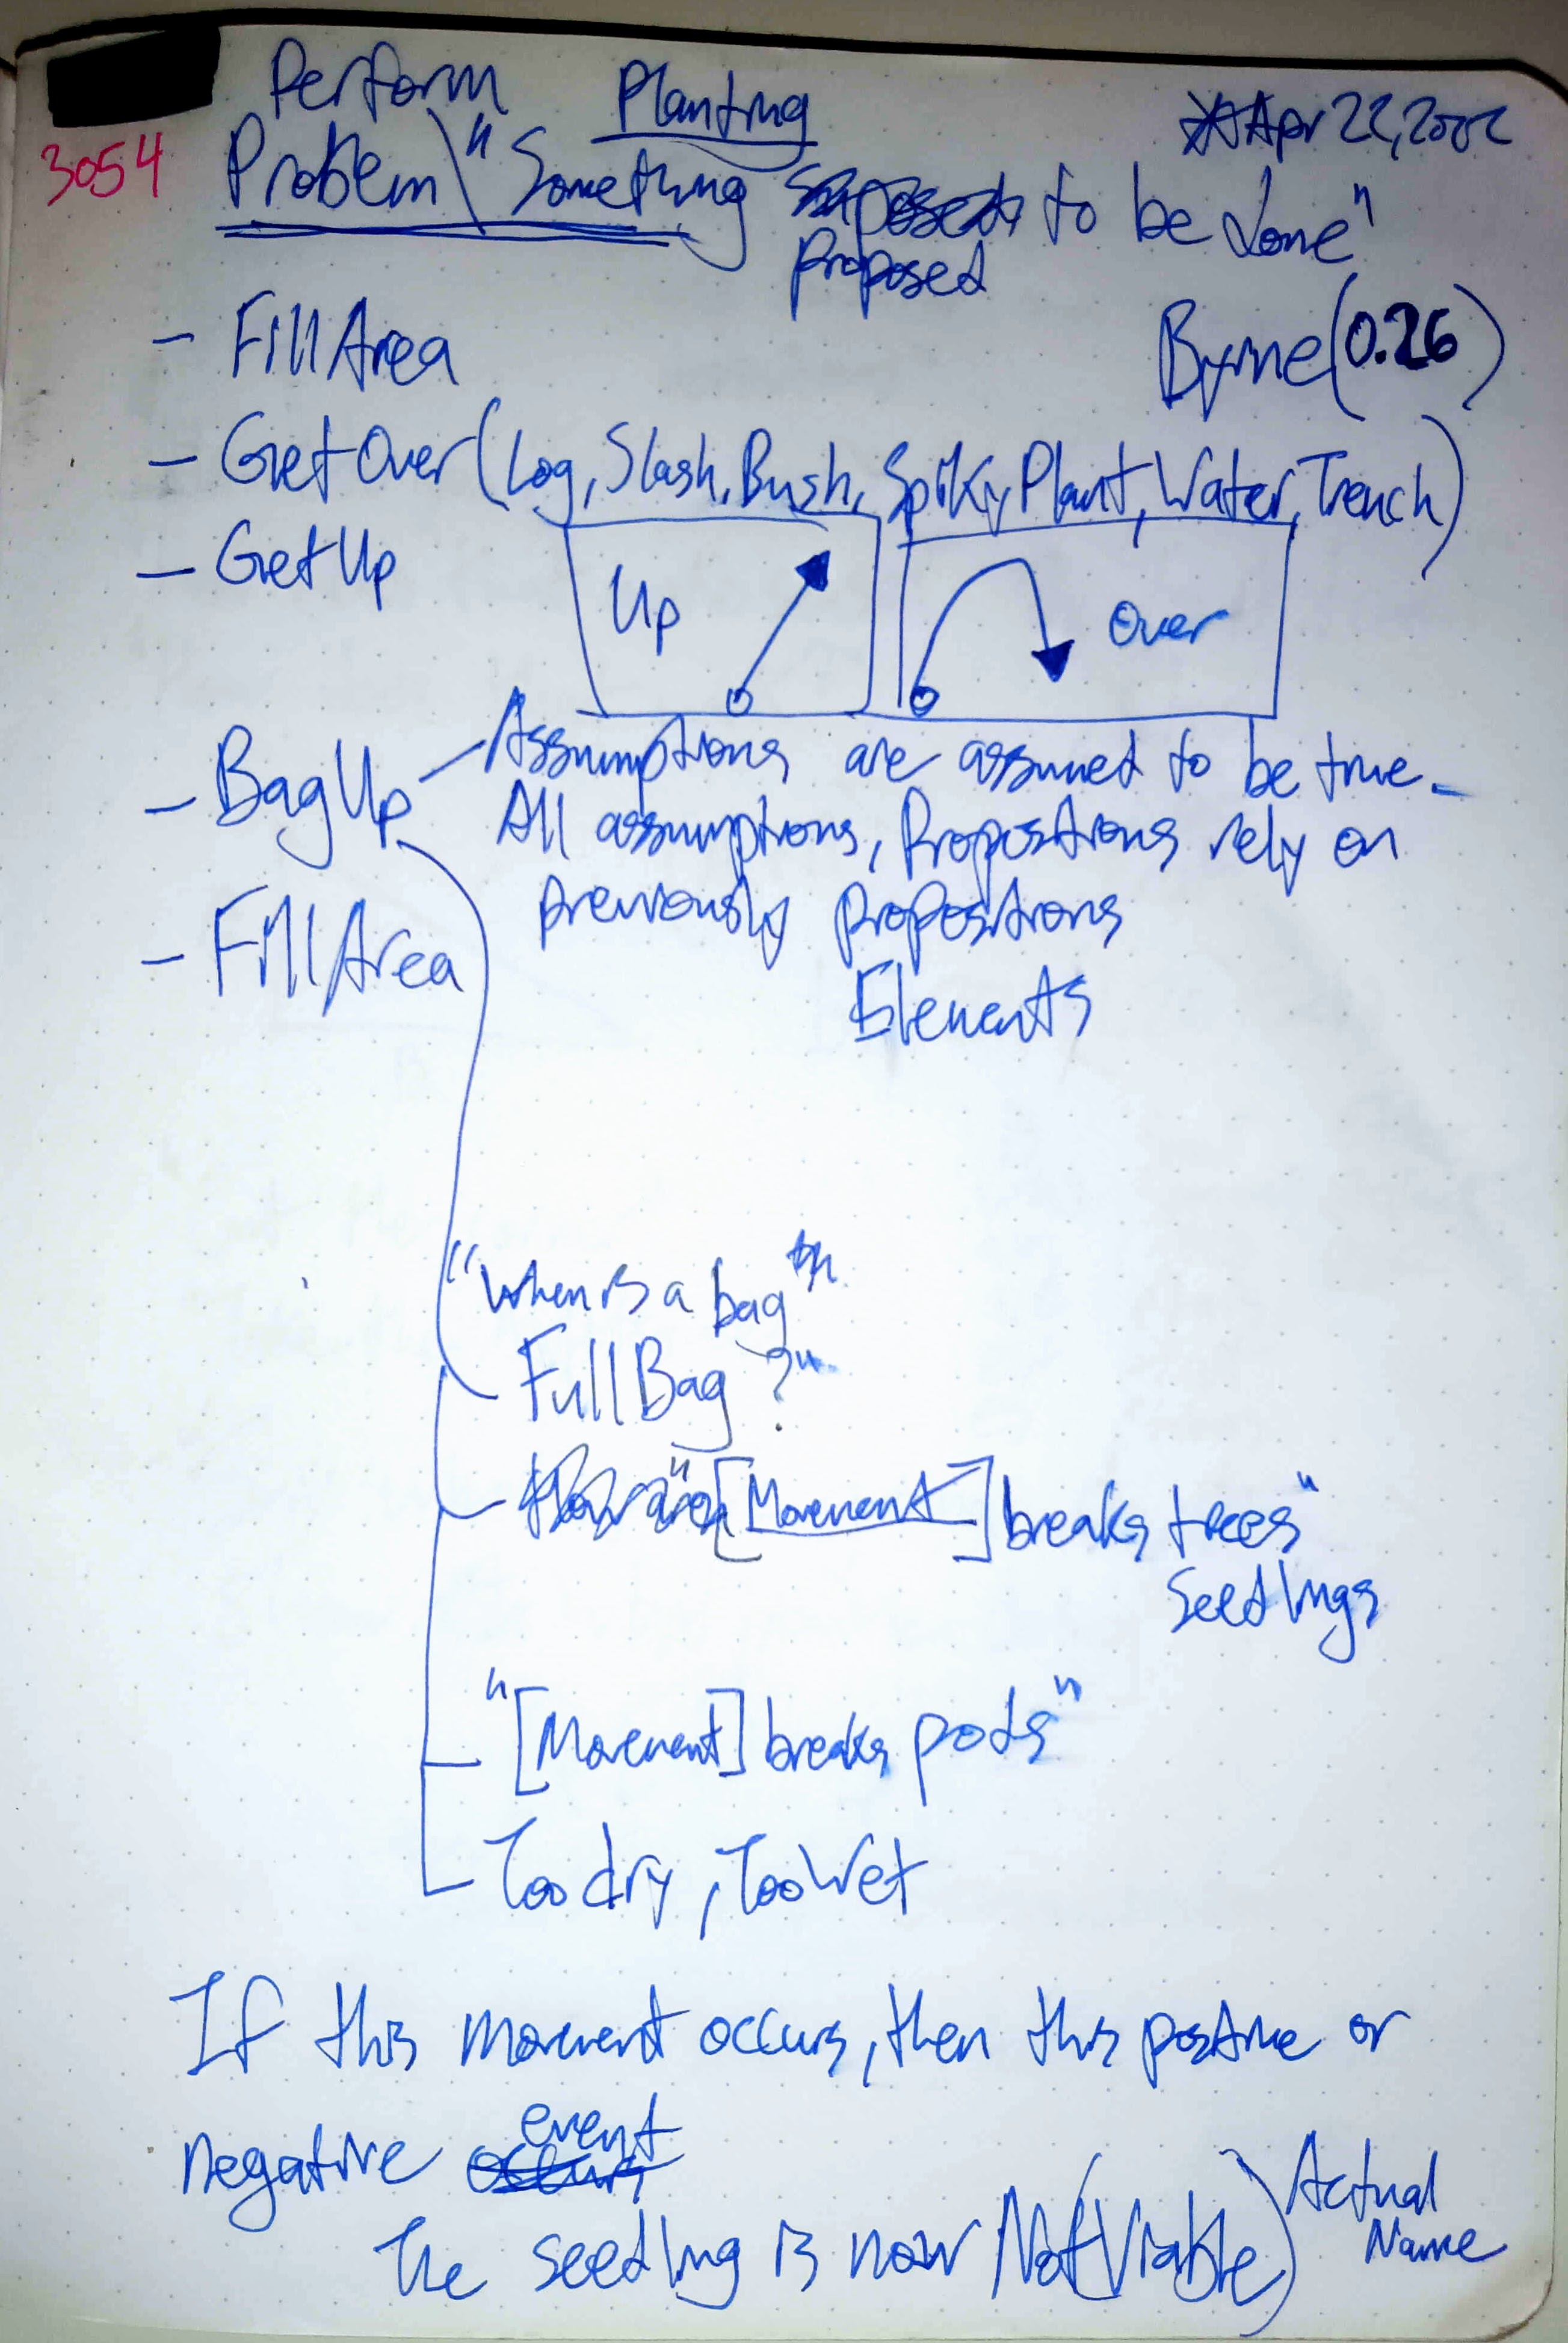 Perform Planting
Apr 22, 2002
3054
Problem "Something to be done"
Proposed
- FillArea
Byrne(0.26)
- GetOver(Log, Slash, Bush, SpikyPlant, Water, Trench)
- GetUp
Up
Over
- BagUp
Assumptions are assumed to be true.
All assumptions, Propositions rely on
previously propositions
Elements
- FillArea
"When is a bag
FullBag?"
"[Movement] breaks trees"
Seedlings
"[Movement] breaks pods"
Too dry, TooWet
If this movement occurs, then this positive or
negative occurs
event
The seedling is now Not(Viable)
Actual
Name